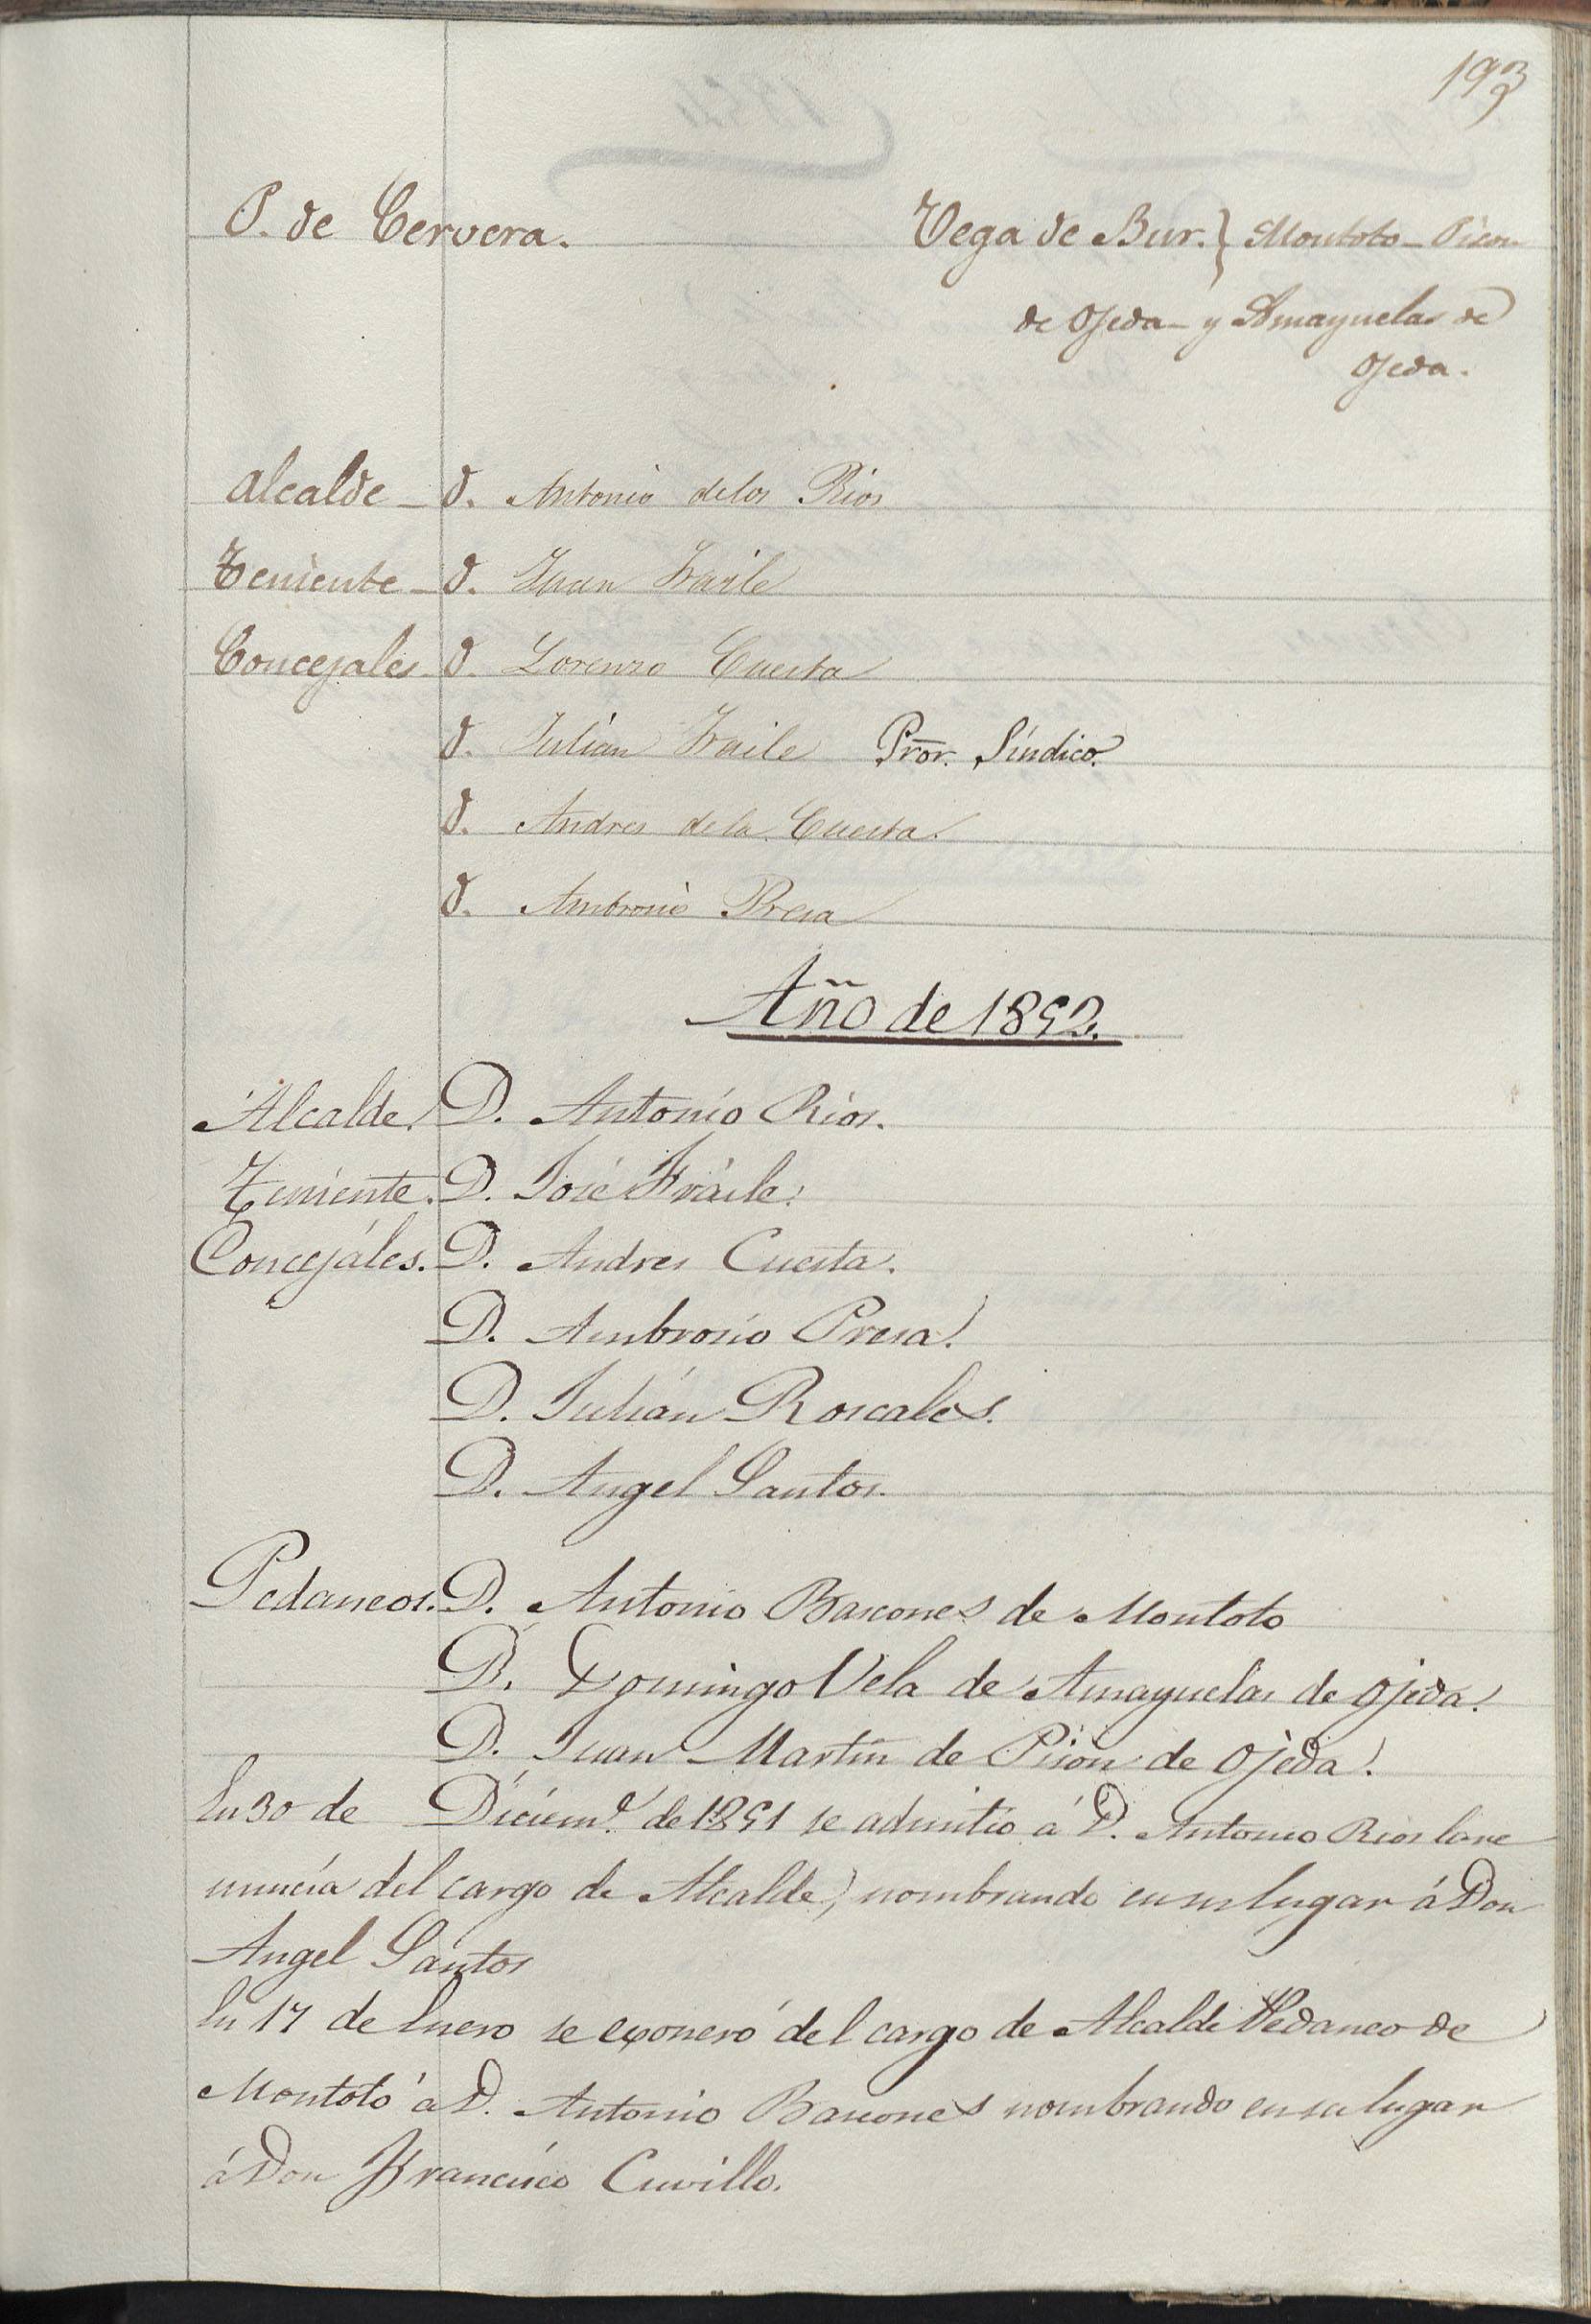 193
P. de Cervera. Vega de Bur. } Montoto - Pison
de Ojeda - y Amayuelas de
Ojeda.
Alcalde - D. Antonio de los Rios
Teniente - D. Juan Fraile
Concejales - D. Lorenzo Cuesta
D. Julian Fraile Pror. Síndico.
D. Andres de la Cuesta.
D. Ambrosio Presa
Año de 1852.
Alcalde. D. Antonio Rios.
Teniente. D. José Fraile.
Concejáles. D. Andres Cuesta.
D. Ambrosio Presa.
D. Julián Roscales.
D. Angel Santos.
Pedaneos. D. Antonio Bascones de Montoto
D. Domingo Vela de Amayuelas de Ojeda.
D. Juan Martin de Pison de Ojeda.
En 30 de Diciem.e de 1851 se admitio á D. Antonio Rios la re
nuncia del cargo de Alcalde, nombrando en su lugar á Don
Angel Santos
En 17 de Enero se exoneró del cargo de Alcalde Pedaneo de
Montoto á D. Antonio Bascones nombrando en su lugar
á Don Francisco Cuvillo.